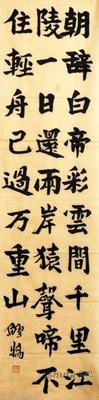 朝辭白帝彩雲間千里江
陵一日還兩岸猿聲啼不
住輕舟已過万重山